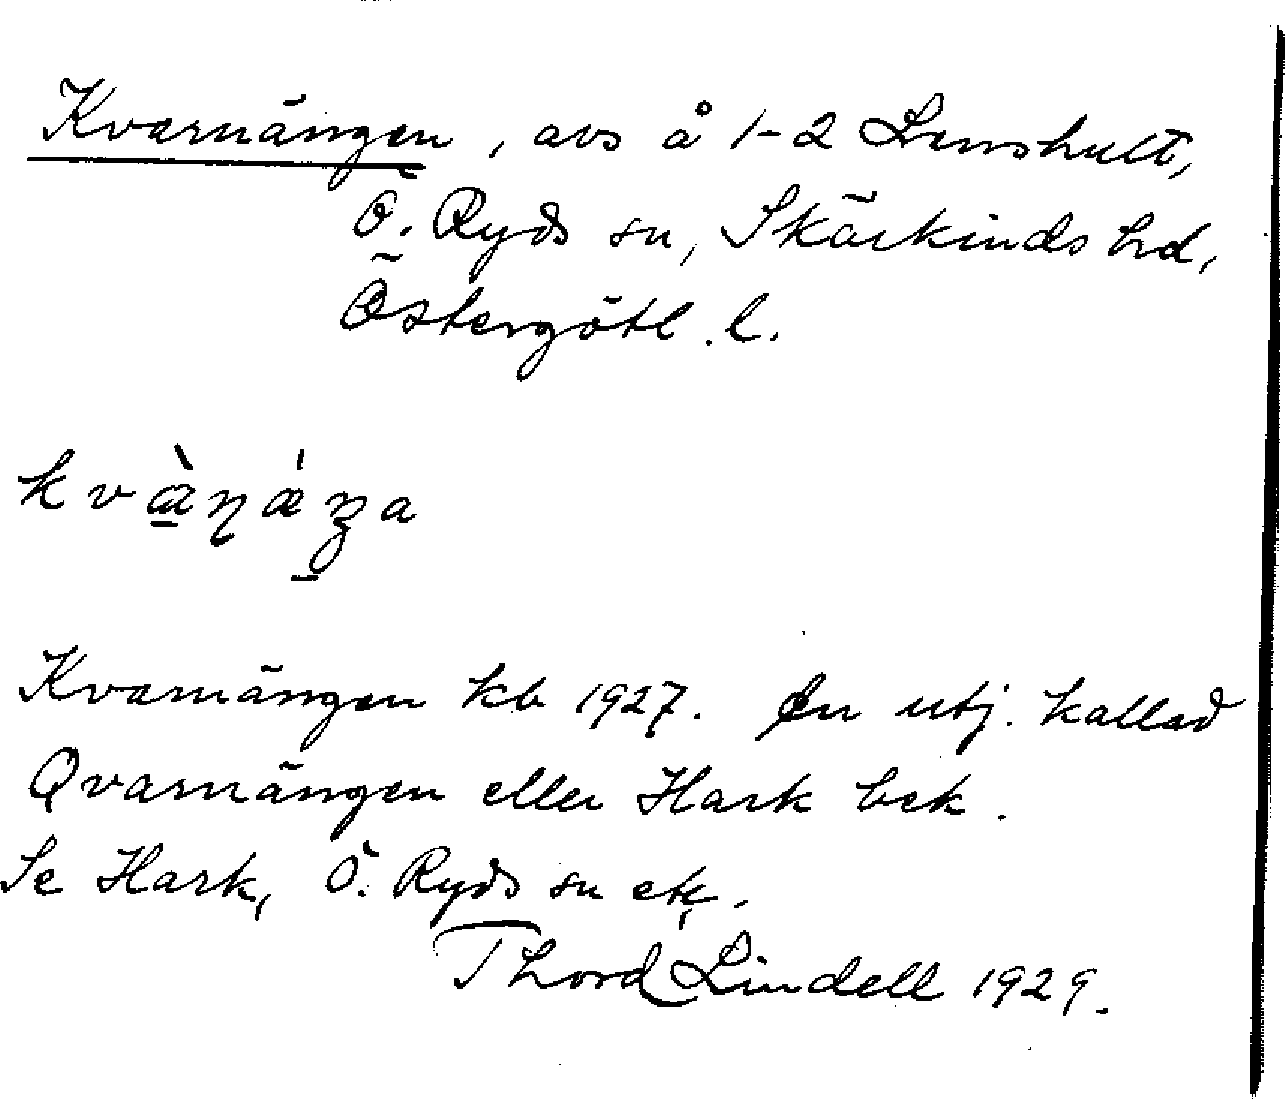 Kvarnängen, avs å 1-2 Linshult,
Ö. Ryds sn, Skärkinds hd,
Östergötl. l.
Kvarnängen kb 1927. En utj. kallad
Qvarnängen eller Hark bek.
Se Hark, Ö. Ryds sn etc.
Thord Lindell 1929.